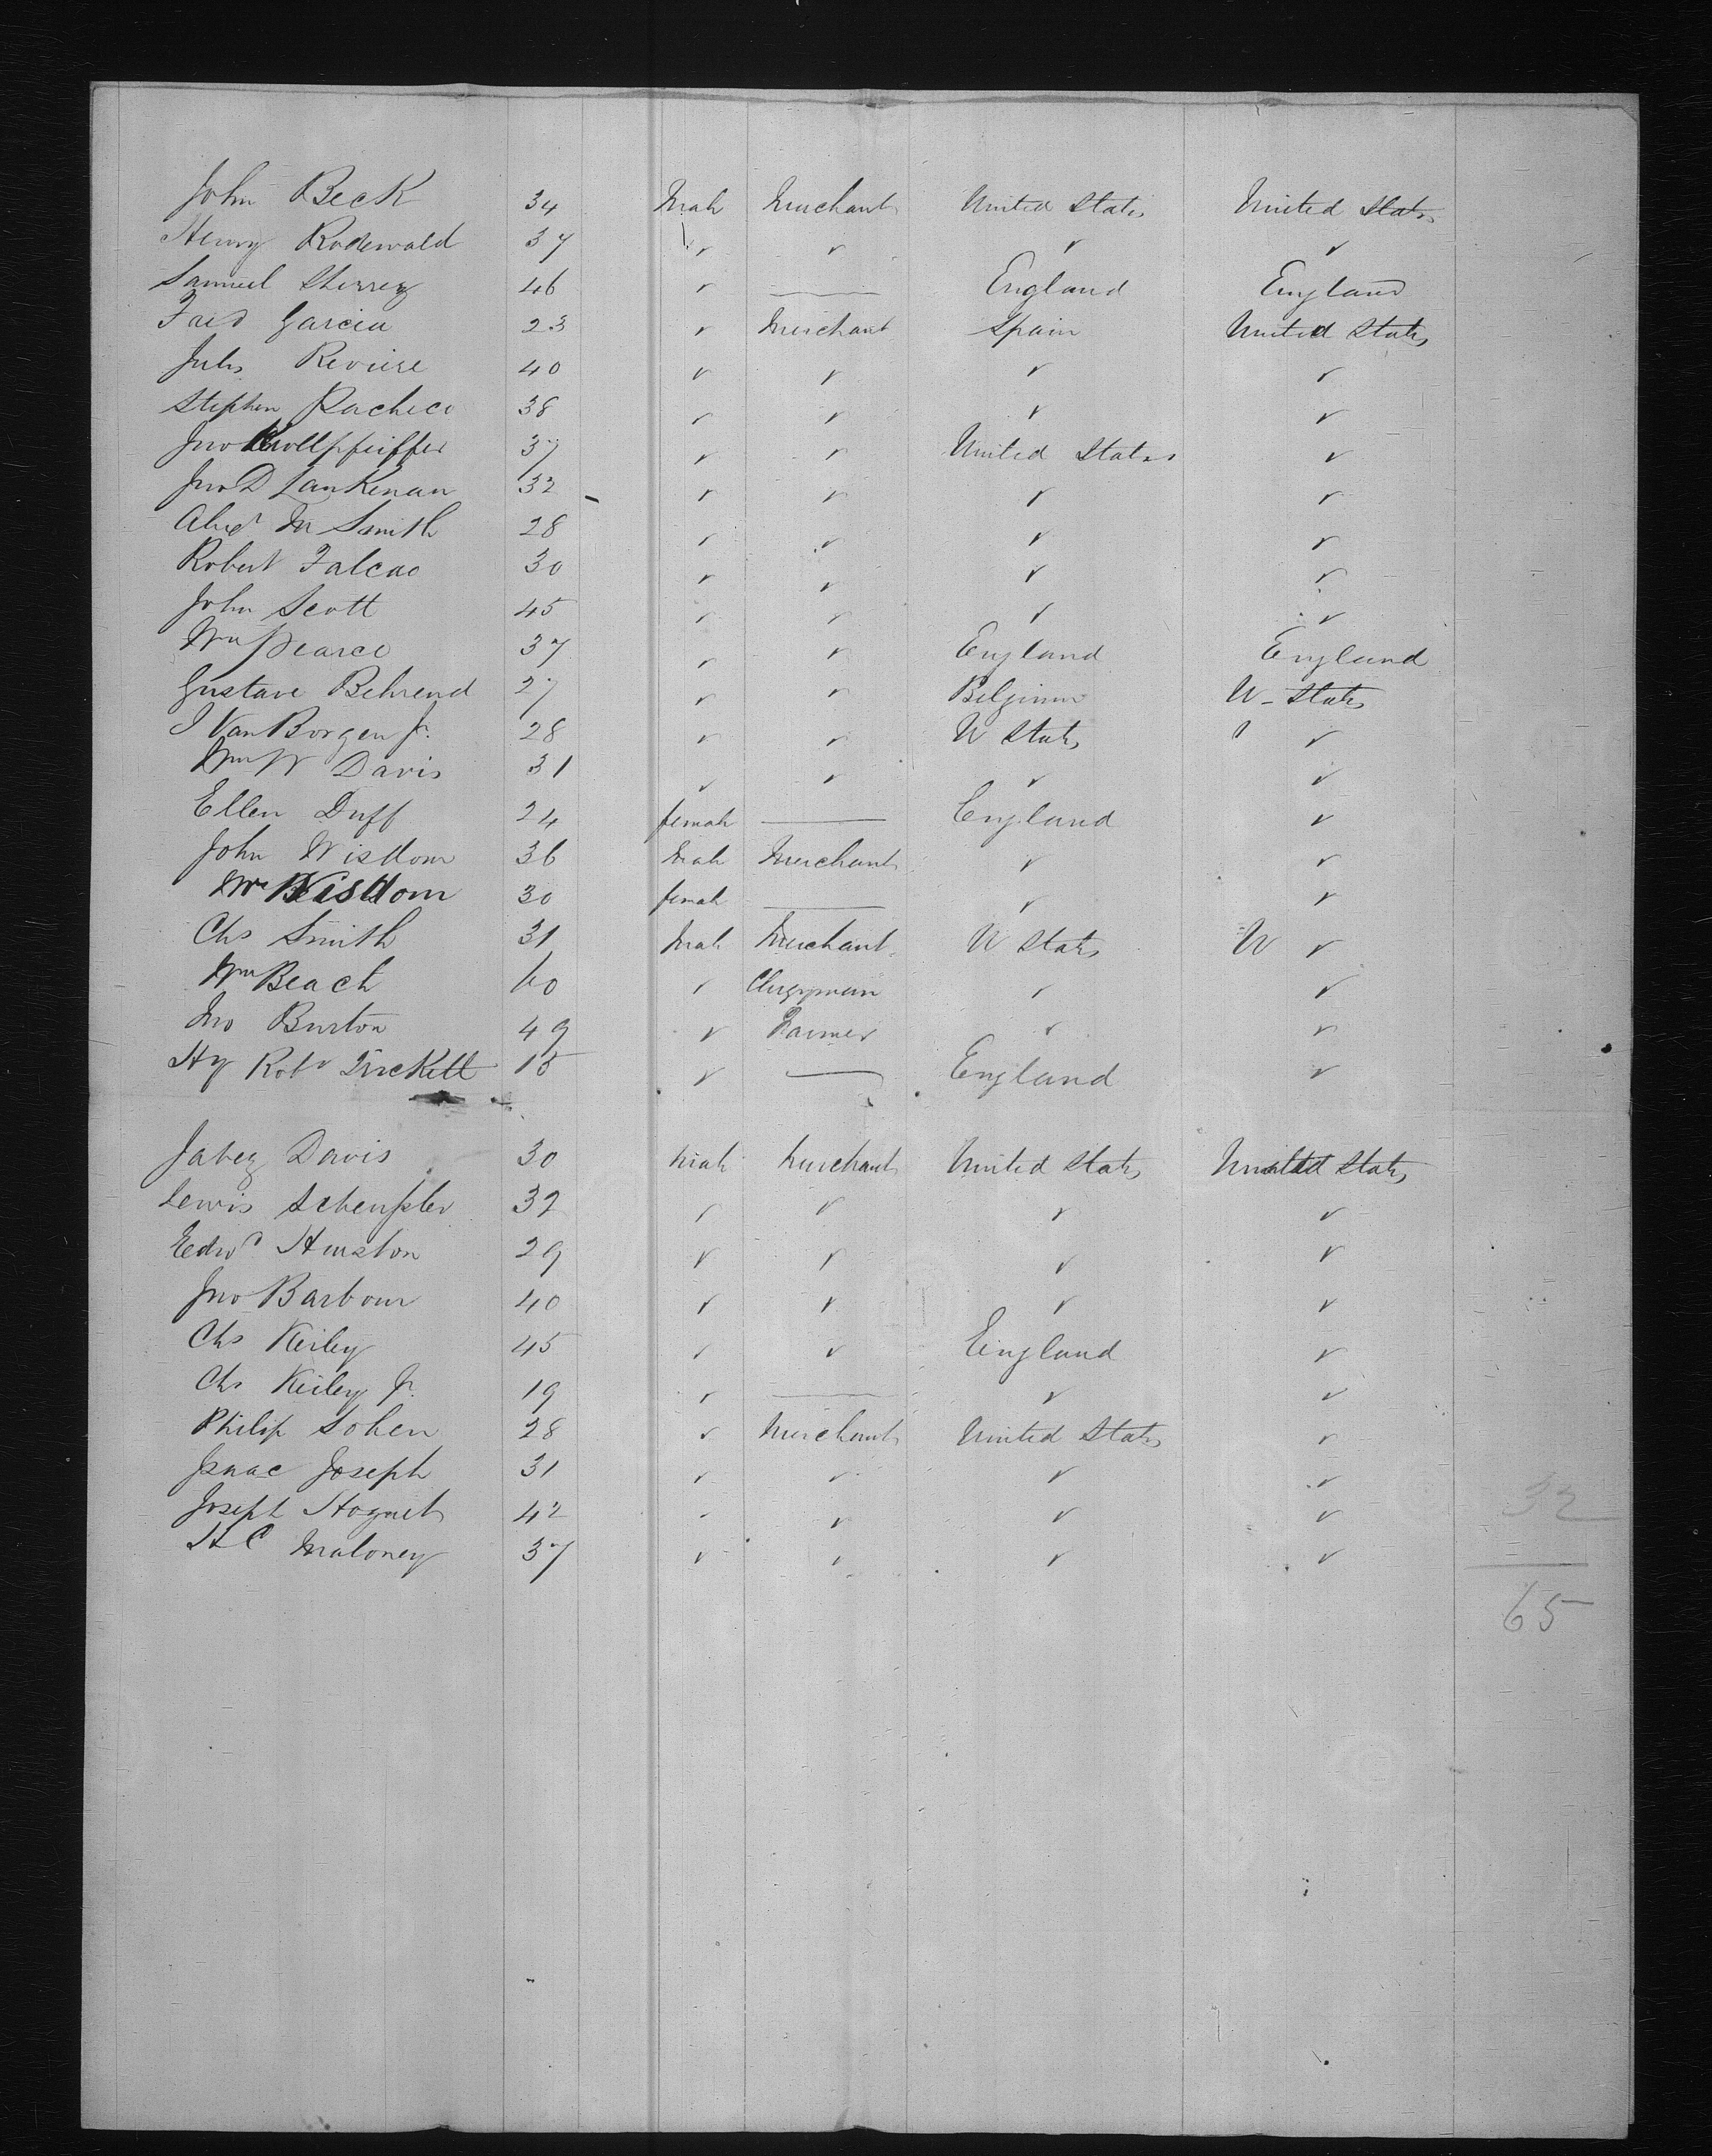 John Beck 34 Male Merchant United States United States
Henry Rodewald 37 " " " "
Samuel Sherrey 46 " — England England
Fred Garcia 23 " Merchant Spain United States
Jules Reviere 40 " " " "
Stephen Pacheco 38 " " " "
Jno Knollpfeiffer 37 " " United States "
Jno D Lankenau 32 " " " "
Alexr M Smith 28 " " " "
Robert Falcao 30 " " " "
John Scott 45 " " " "
Wm Pearce 37 " " England England
Gustave Behrend 27 " " Belgium U-States
J Van Borgen Jr. 28 " " U States "
Wm W Davis 31 " " " "
Ellen Duff 24 female — England "
John Wisdom 36 Male Merchant " "
Mrs Wisdom 30 female — " "
Chs Smith 31 Male Merchant U States U "
Wm Beach 60 " Clergyman " "
Jno Burton 49 " Farmer " "
Hy Robt Tuckett 15 " — England "
Jabez Davis 30 Male Merchant United States United States
Lewis 32 " " " "
Edwd Huston 29 " " " "
Jno Barbour 40 " " " "
Chs Keiley 45 " " England "
Chs Keiley Jr. 19 " — " "
Philip Sohen 28 " Merchant United States "
Isaac Joseph 31 " " " "
Joseph 42 " " " "
32
H C Maloney 37 " " " "
65